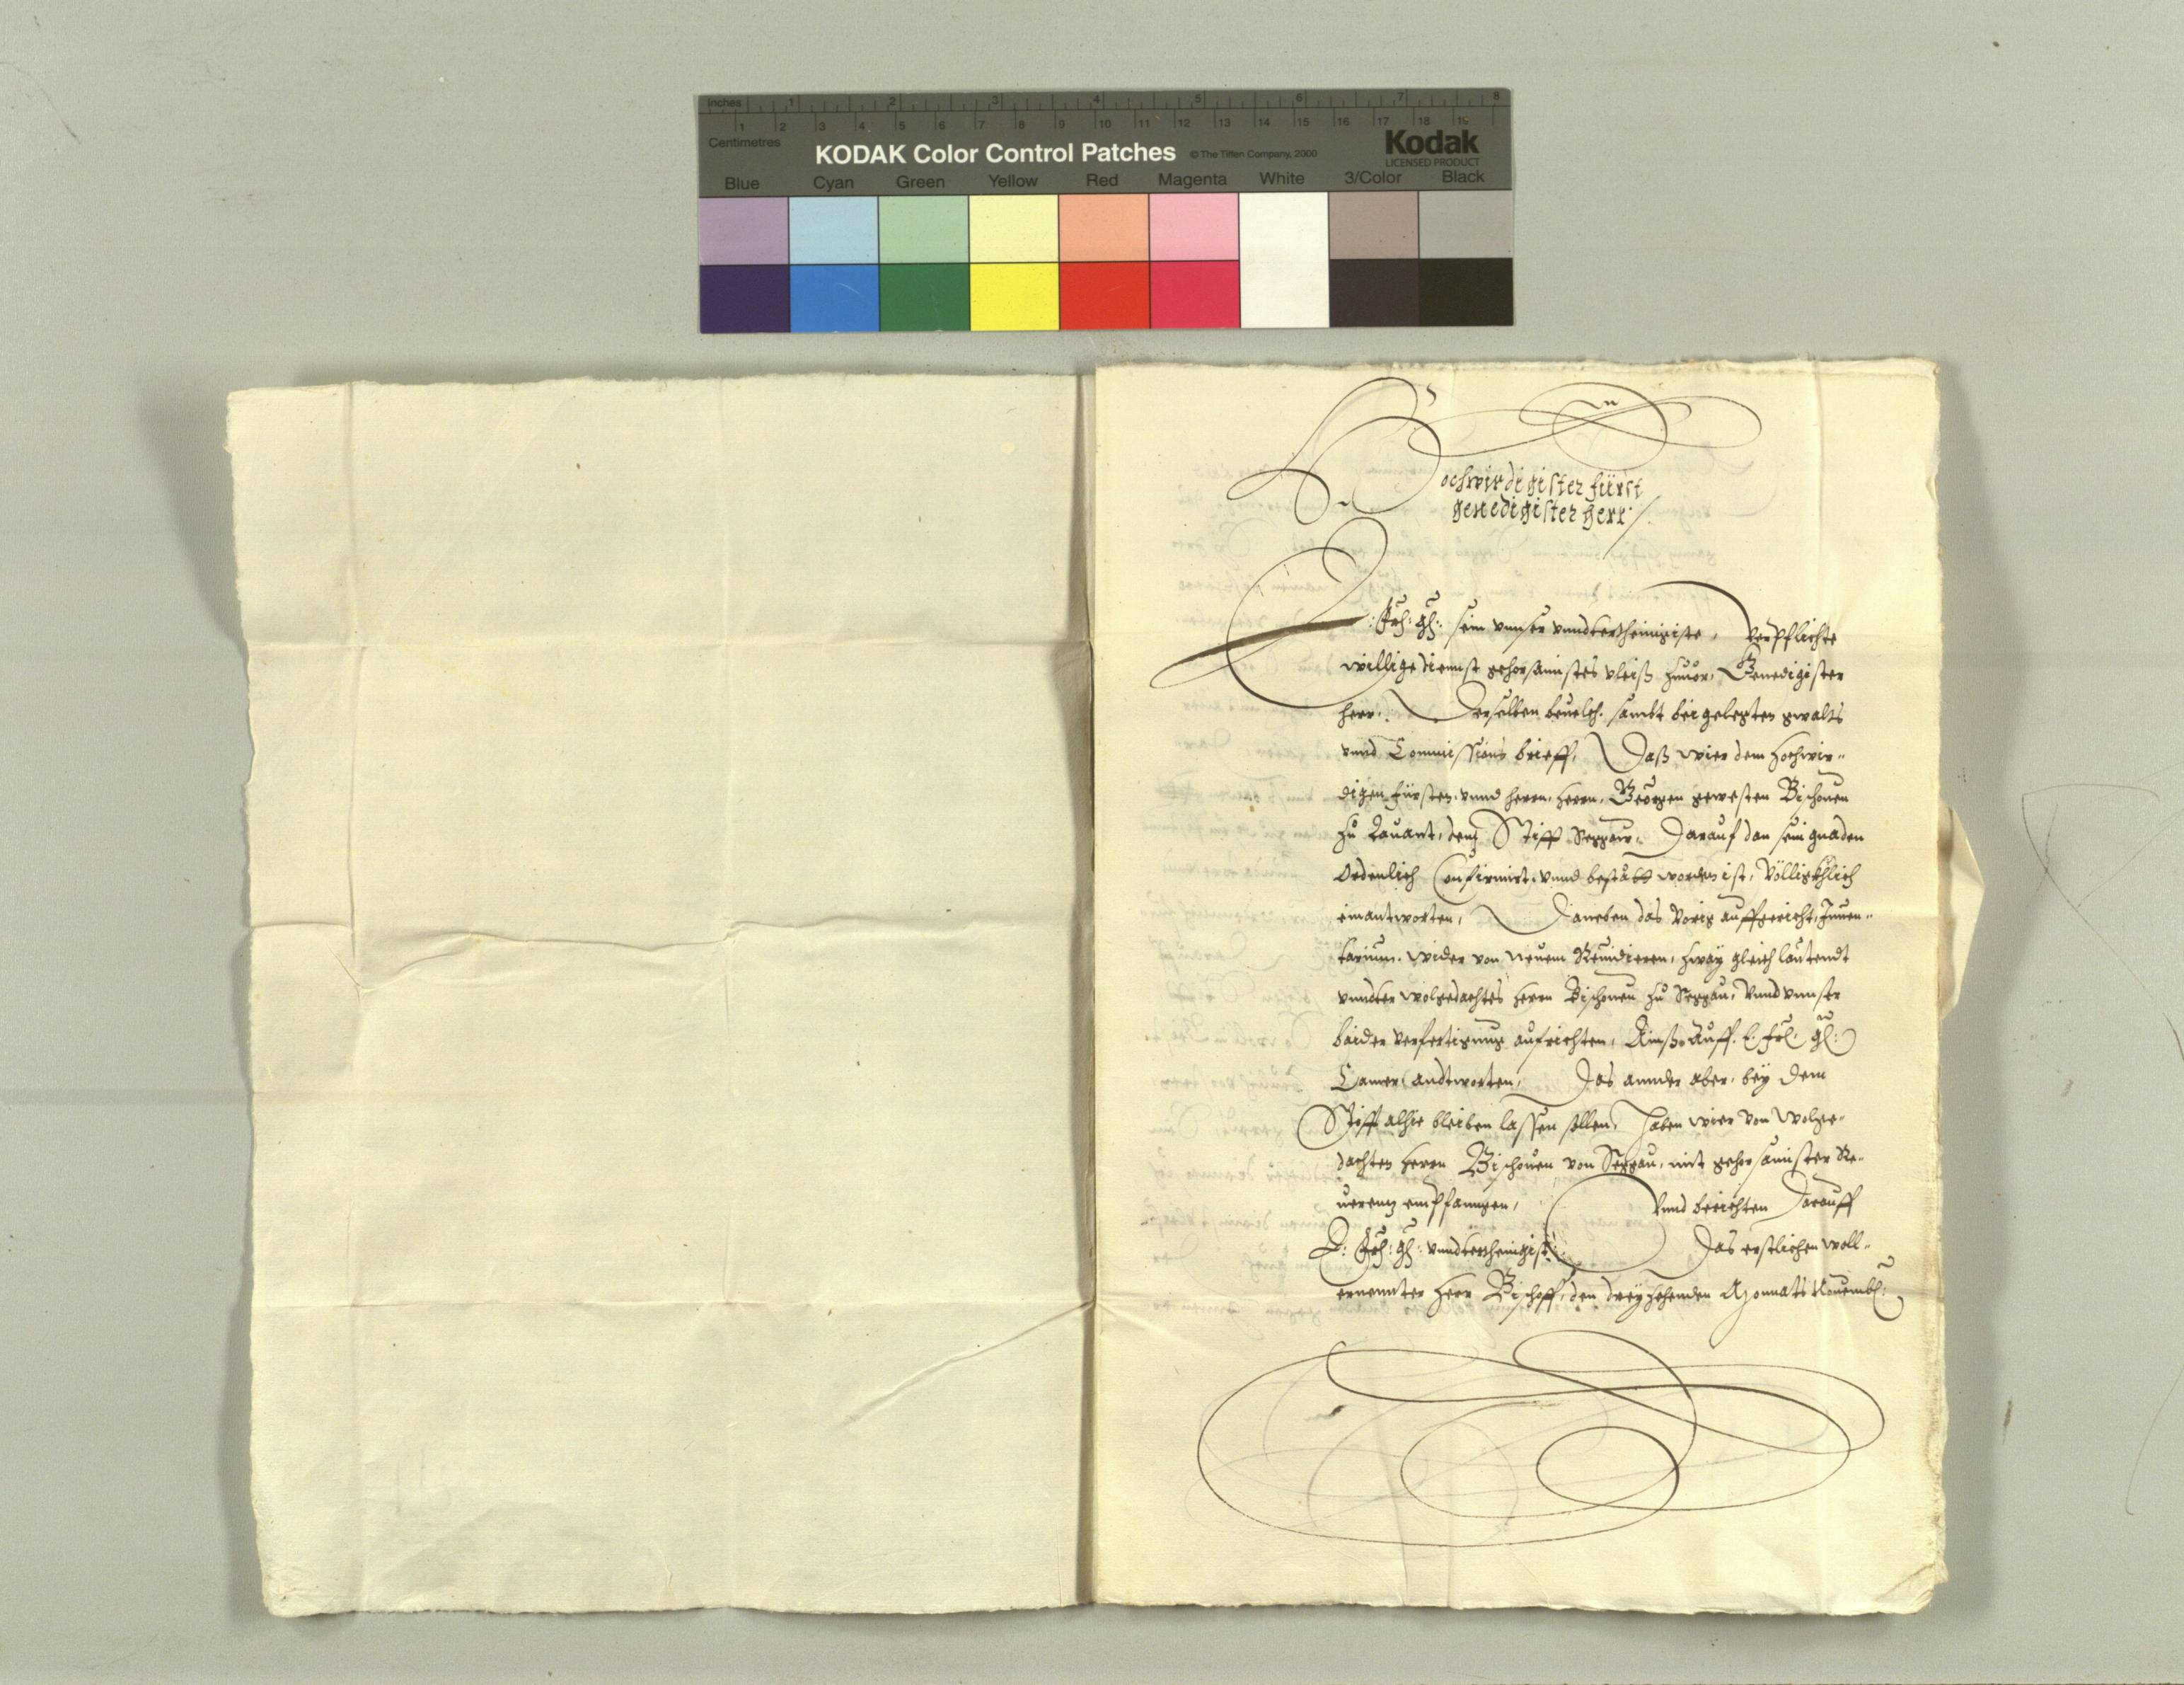 Inches 1 2 3 4 5 6 7 8
Centimetres 1 2 3 4 5 6 7 8 9 10 11 12 13 14 15 16 17 18 19
KODAK Color Control Patches © The Tiffen Company, 2000 Kodak
LICENSED PRODUCT
Blue Cyan Green Yellow Red Magenta White 3/Color Black
Hochwirdigister fürst
genedigister herr /
E: Frh: gh: sein vnnser vnndterthenigiste, verpflichte
willige diennst gehorsamistes vleiß zuuor, Genedigister
herr. Derselben beuelch. sambt beigelegten gwalts
vnnd Commissions brieff, Daß wier dem hochwir-
digen fürsten vnnd herrn, herrn, Georgen gewesten Bischouen
zu Lauant, Stifft Seggaw, Darauf dan sein gnaden
Ordenlich Confirmirt vnnd bestätt worden ist, Völligkhlich
einantworten, Daneben das vorig auffgericht Inuen-
tarium. wider von Neuem Reuidieren, zway gleich lautendt
vnndter wolgedachtes herrn Bischouen zu Seggau, vnnd vnnser
baider verfertigung aufrichten, Ainß Auff. E. Frl: gl:
Camer, andtworten, Das annder aber, bey dem
Stifft alhie bleiben lassen sollen, haben wier von wolge-
dachten herrn Bischouen von Seggau, mit gehorsamister Re-
uerenz empfanngen, Vnnd berichten Darauff
E: Frh: gh: vnndterthenigist: Das erstlichen woll-
ernennter herr Bischoff, den dreyzehenden Monnats Nouembl: